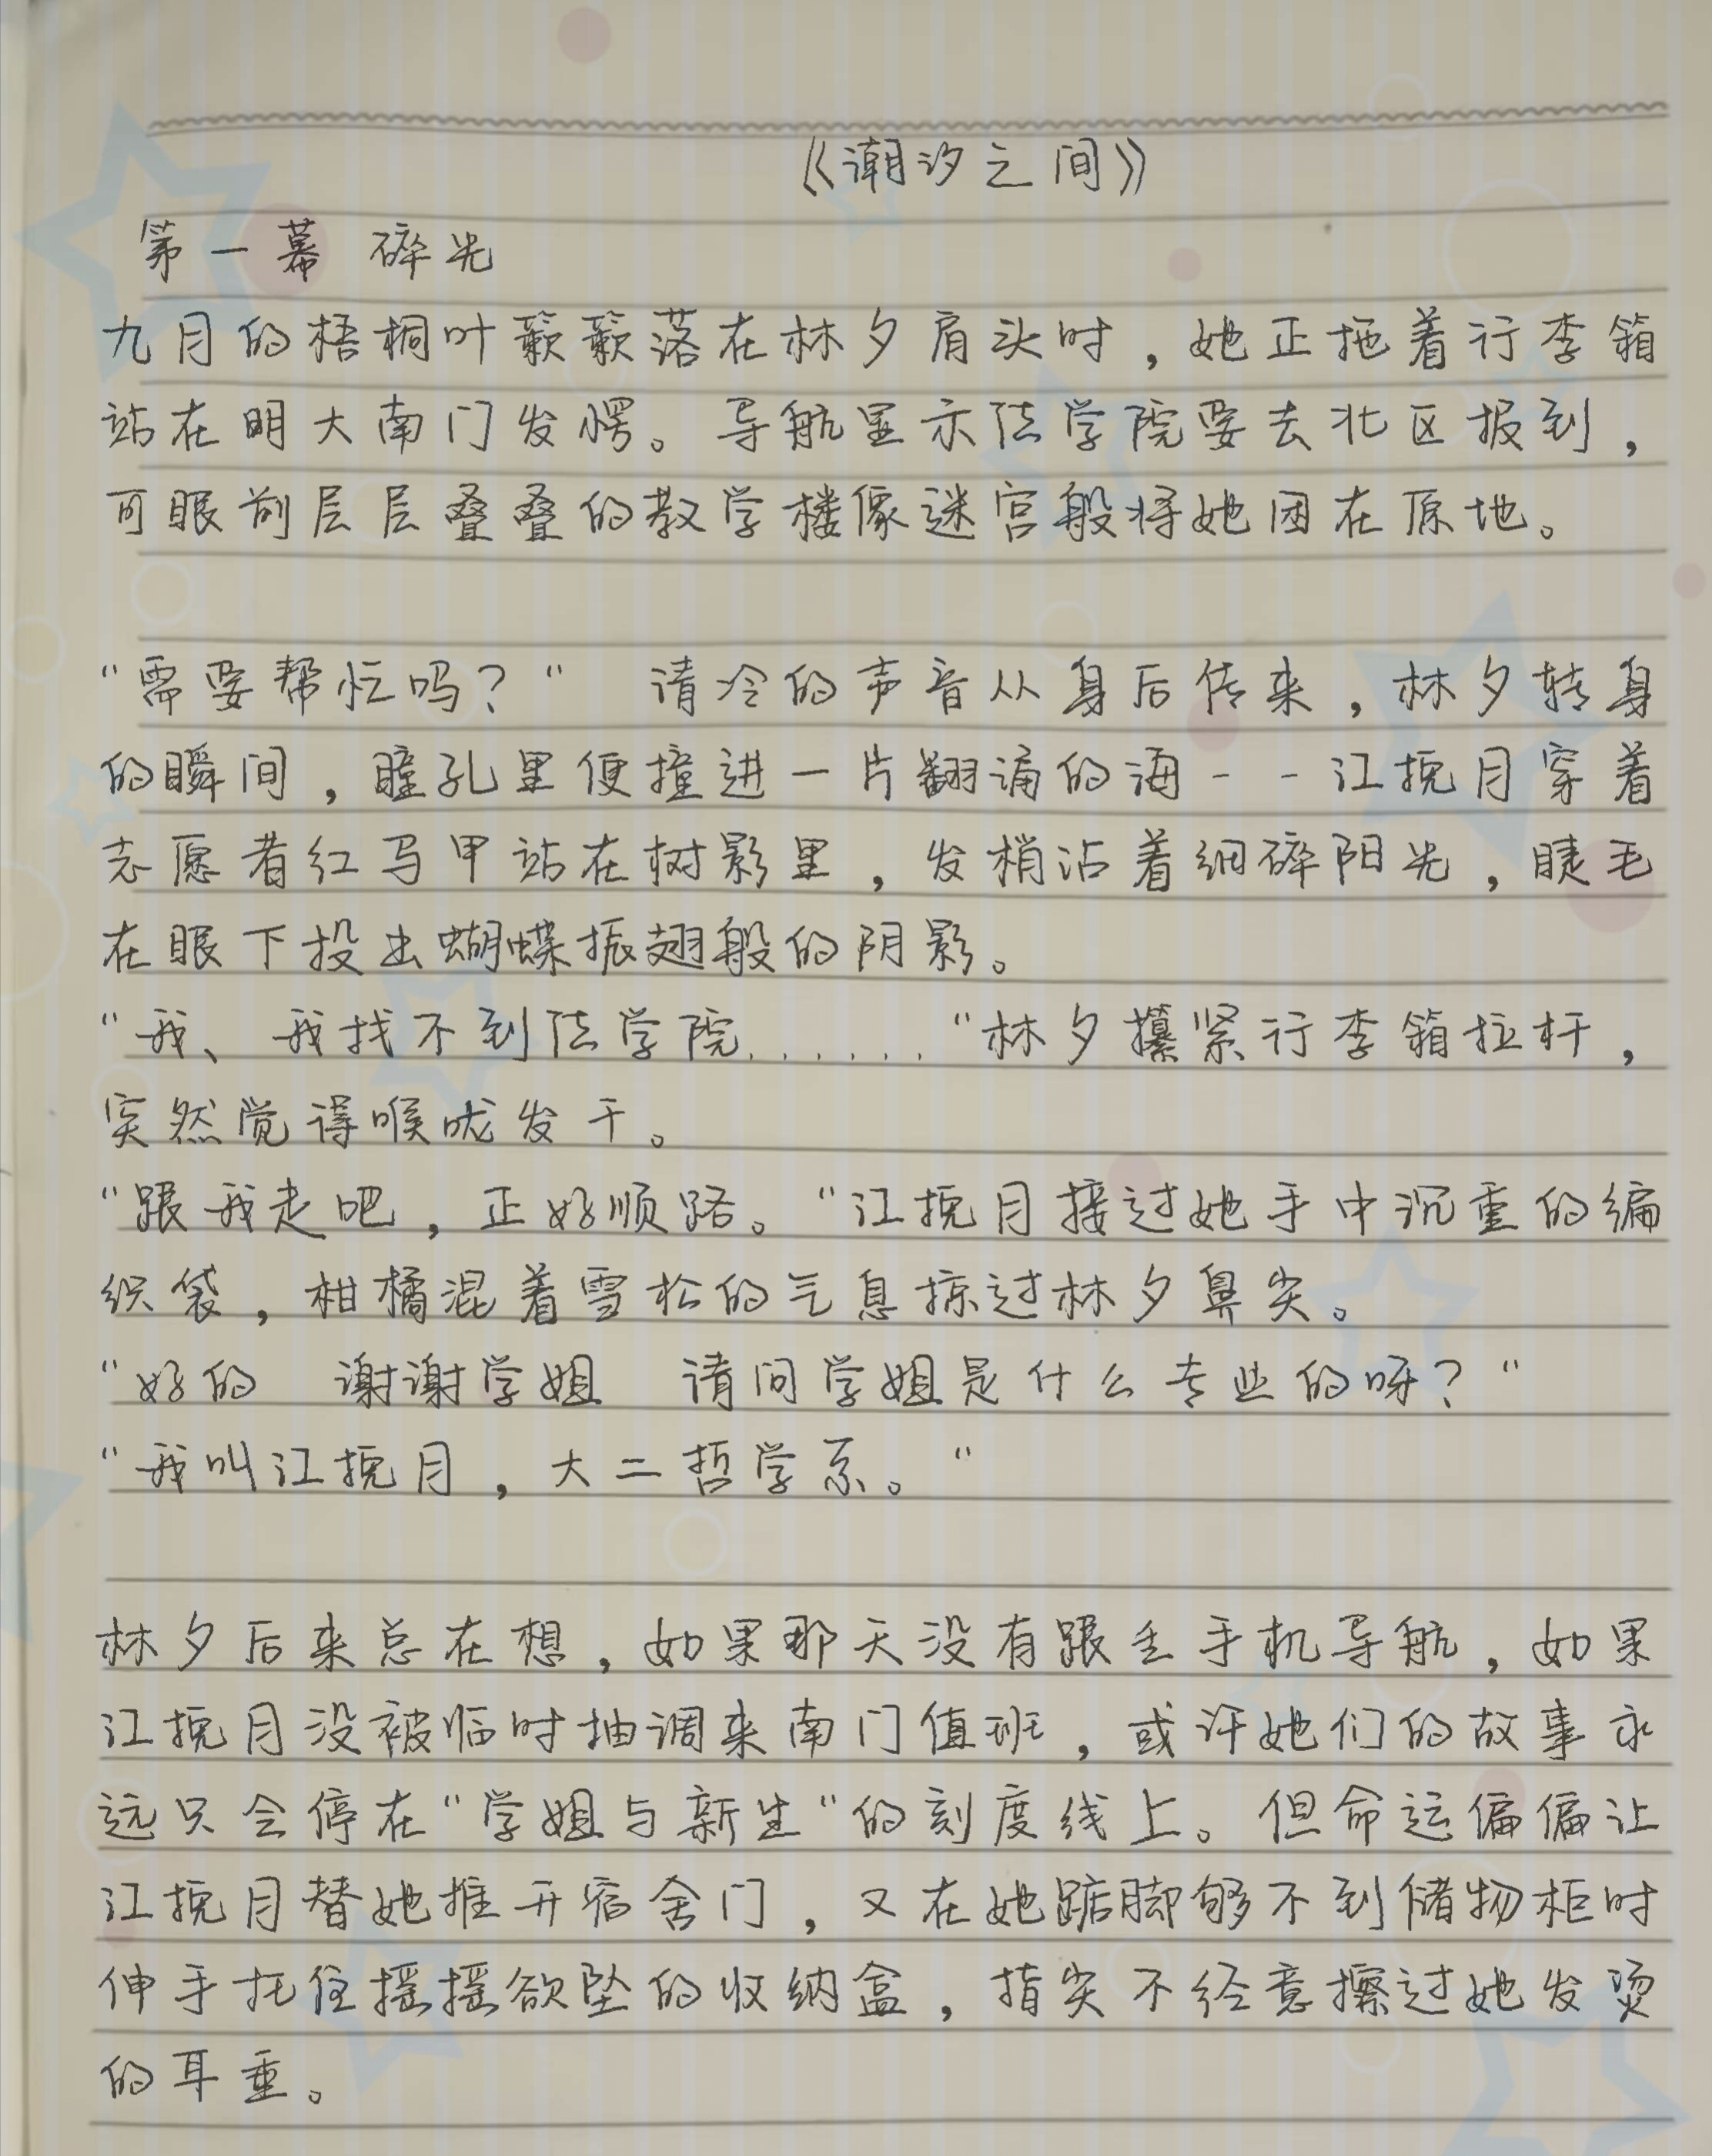 《潮汐之间》
第一幕 碎光
九月的梧桐叶簌簌落在林夕肩头时，她正拖着行李箱
站在明大南门发愣。导航显示法学院要去北区报到，
可眼前层层叠叠的教学楼像迷宫般将她困在原地。
“需要帮忙吗？“ 清冷的声音从身后传来，林夕转身
的瞬间，瞳孔里便撞进一片翻涌的海--江挽月穿着
志愿者红马甲站在树影里，发梢沾着细碎阳光，睫毛
在眼下投出蝴蝶振翅般的阴影。
“我、我找不到法学院......“林夕攥紧行李箱拉杆，
突然觉得喉咙发干。
“跟我走吧，正好顺路。“江挽月接过她手中沉重的编
织袋，柑橘混着雪松的气息掠过林夕鼻尖。
“好的 谢谢学姐 请问学姐是什么专业的呀？“
“我叫江挽月，大二哲学系。“
林夕后来总在想，如果那天没有跟丢手机导航，如果
江挽月没被临时抽调来南门值班，或许她们的故事永
远只会停在“学姐与新生“的刻度线上。但命运偏偏让
江挽月替她推开宿舍门，又在她踮脚够不到储物柜时
伸手托住摇摇欲坠的收纳盒，指尖不经意擦过她发烫
的耳垂。